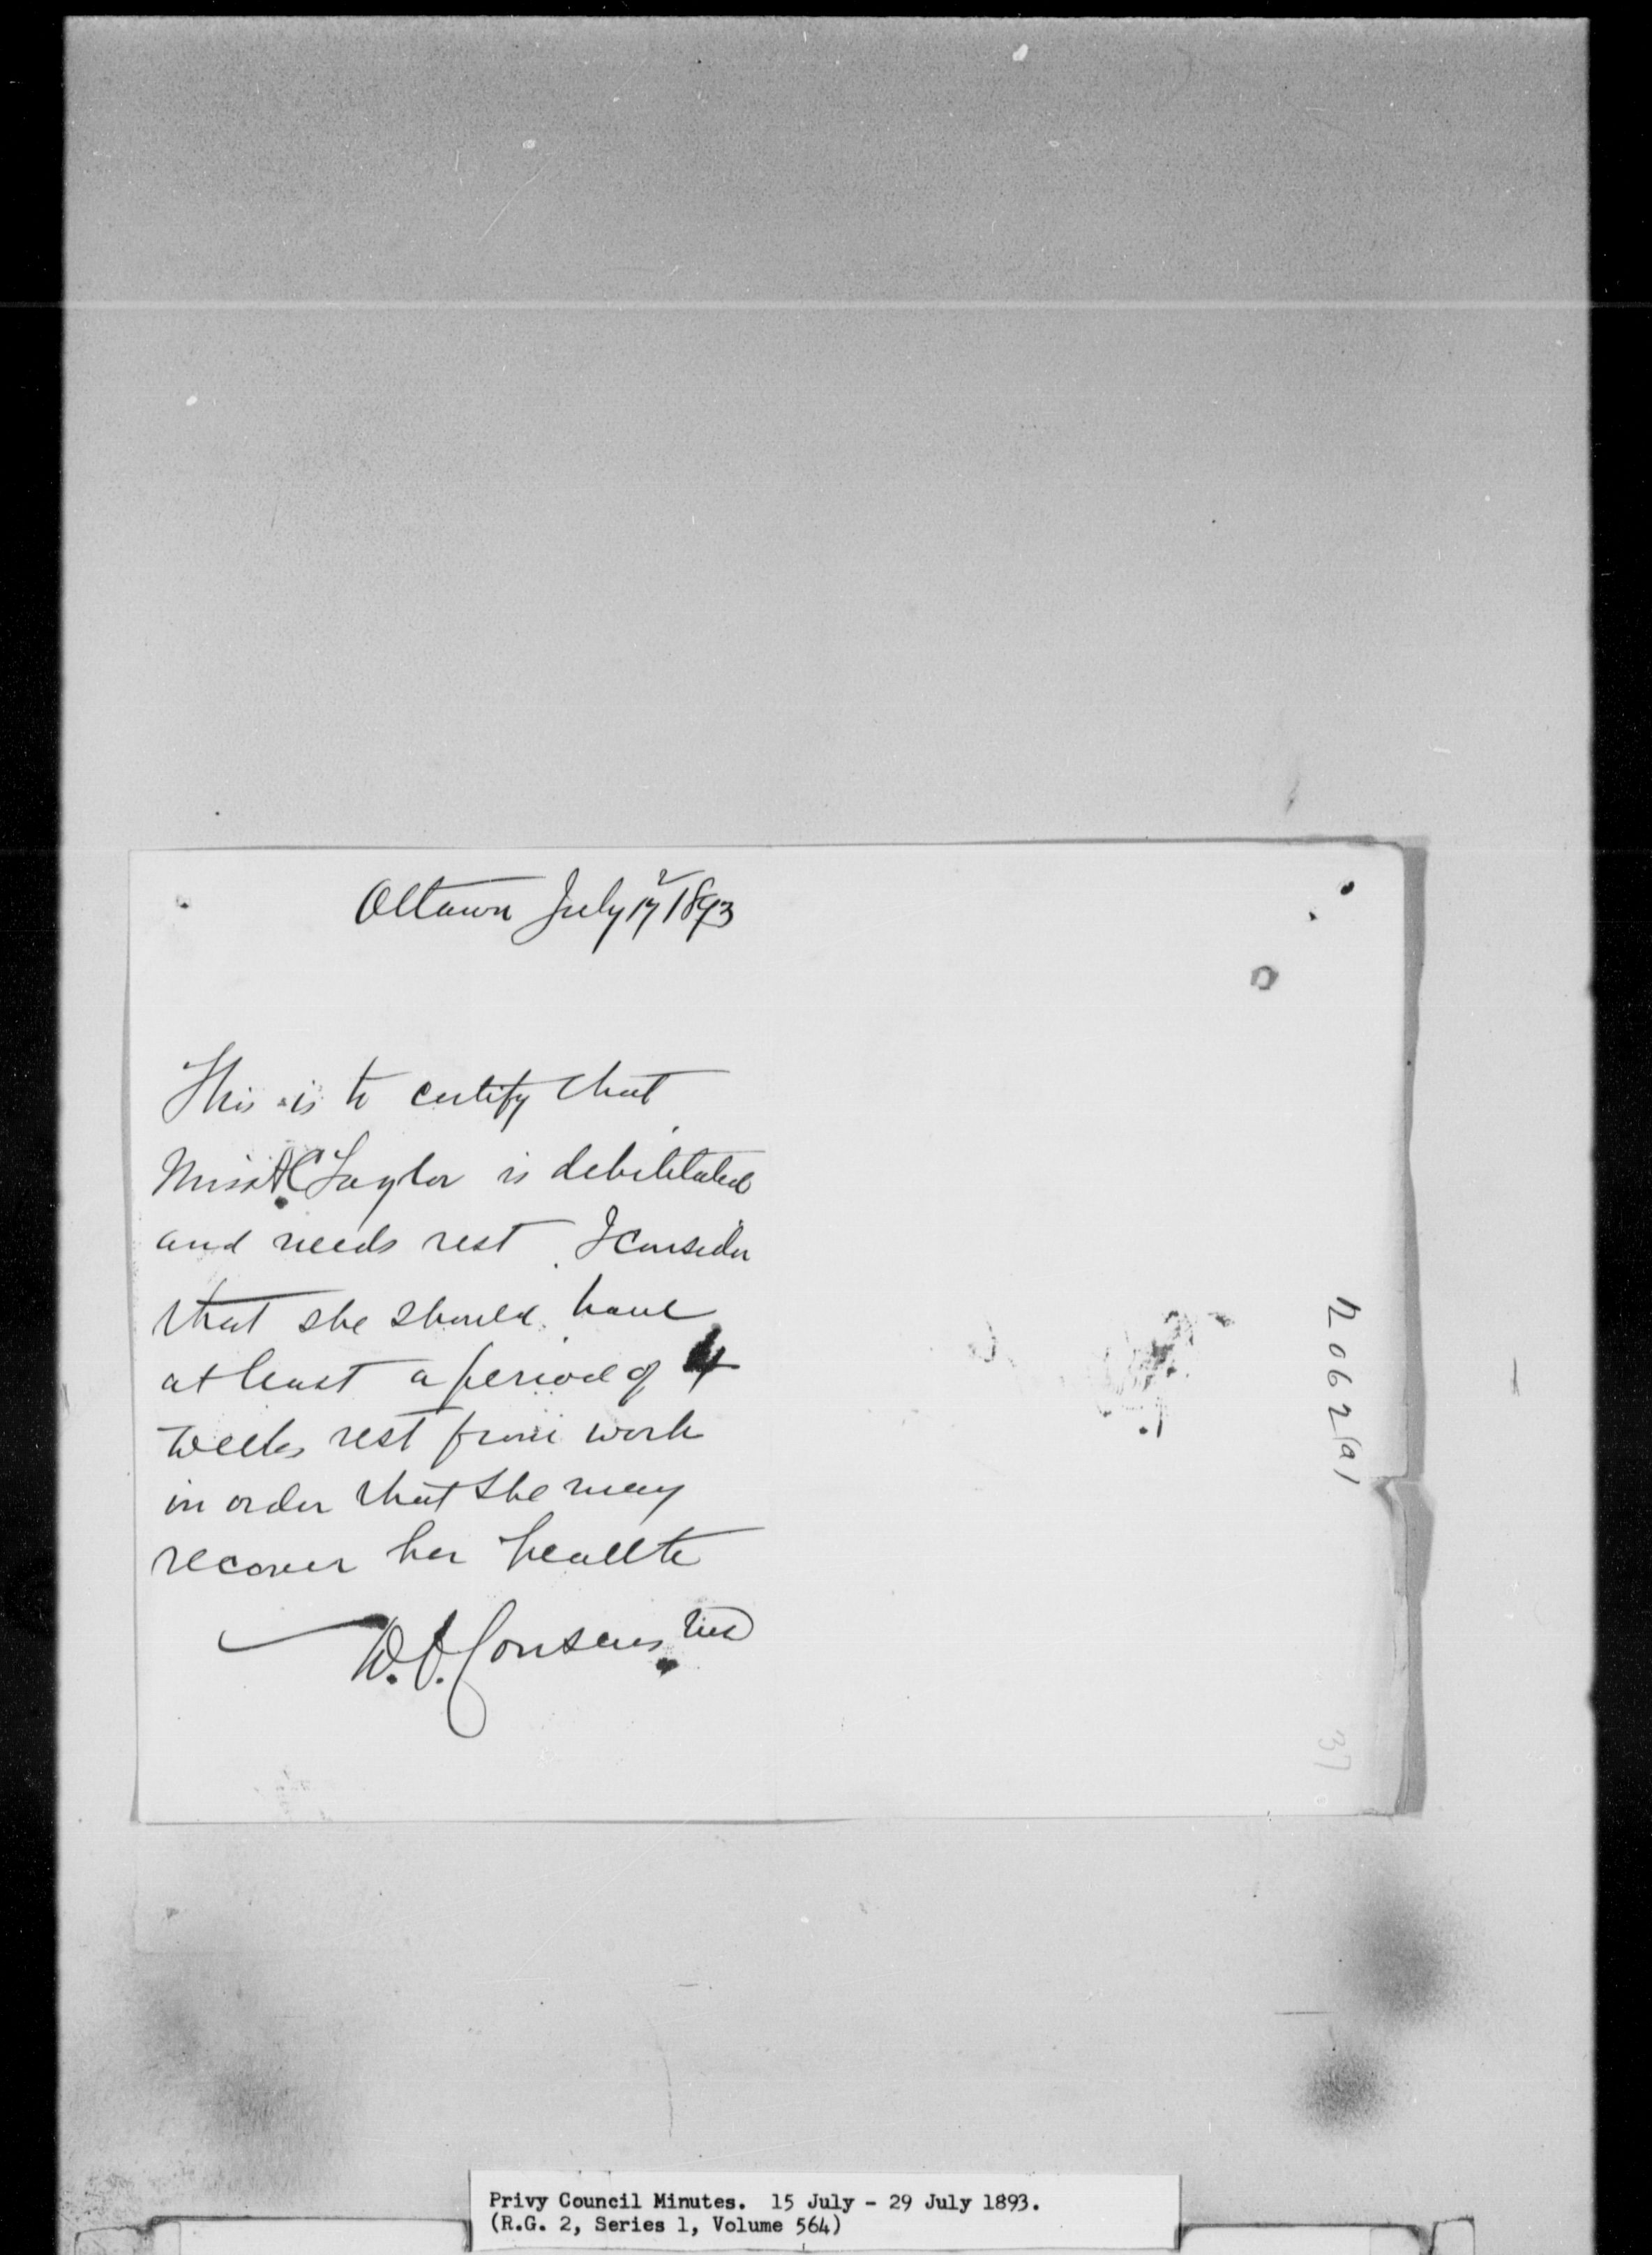 Ottawa July 17 1893
This is to certify that
Miss A C Taylor is debilitated
and needs rest. I consider
that she should have
at least a period of 4
weeks rest from work
in order that she may
recover her health
W. Cousens MD
2062(a)
37
Privy Council Minutes. 15 July - 29 July 1893.
(R.G. 2, Series 1, Volume 564)